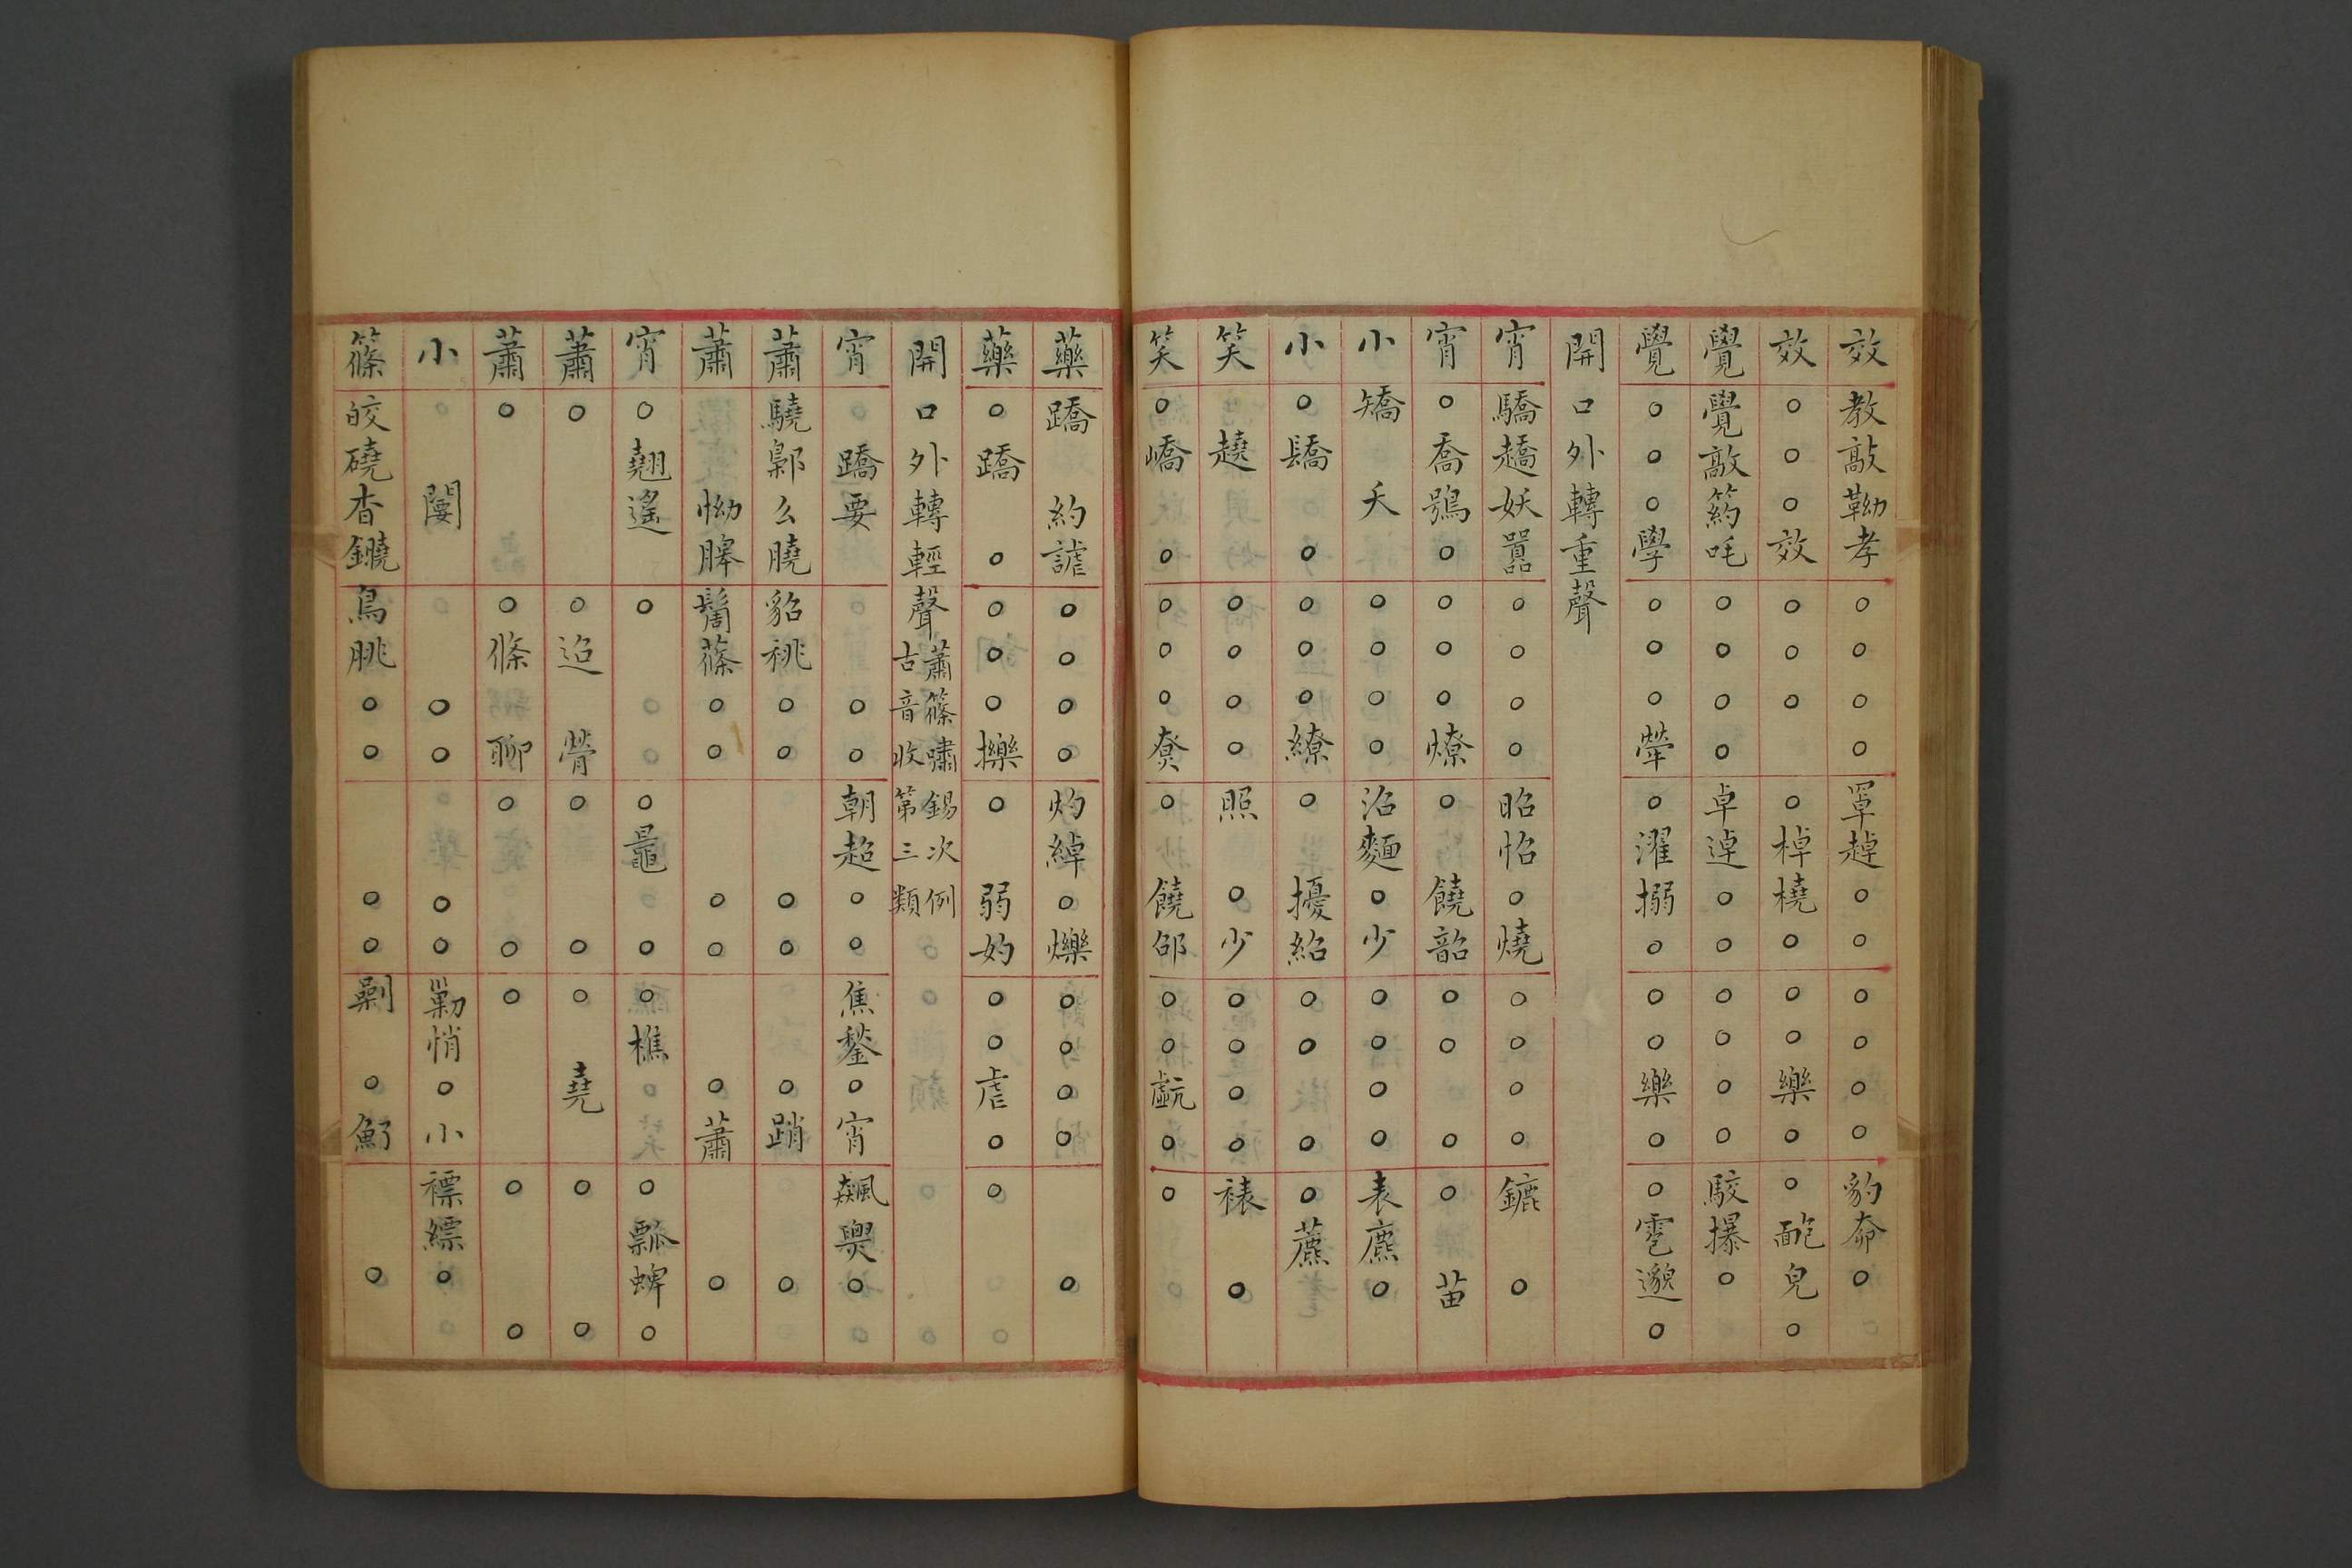 效教敲靿孝○○○○罩趠○○○○○○豹奅○
效○○○效○○○　○棹橈○○○樂○○皰皃○
覺覺敲葯吒○○○○卓逴○○○○○○駮㩧○
覺○○○學○○○犖○濯搦○○○樂○○雹邈○
開口外轉重聲
宵驕趫妖囂○○○○昭怊○燒○○○○鑣○
宵○喬鴞○○○○燎○饒韶○○○○苗
小矯夭○○○○沼麵○少○○○○表麃○
小○鱎○○○○繚○擾紹○○○○藨
笑趬○○○○照○少○○○○裱○
笑○嶠○○○○尞○饒邵○○○○
藥蹻約謔○○○○灼綽○爍○○○○○
藥○蹻○○○○擽○弱妁○○虐○○
開口外轉輕聲蕭篠嘯錫次例古音收第三類
宵蹻要○○朝超○○焦鍫○宵飆㷼○
蕭驍鄡么膮貂祧○○○○○踃○
蕭怮膮髫蓨○○○○○蕭○
宵○翹遙○○鼂○○樵○瓢蜱○
蕭○○迢膋○○○堯○○
蕭○○條聊○○○○○
小闄○○○○勦悄○小褾縹○
篠皎磽杳鐃鳥朓○○○○剿○魡○